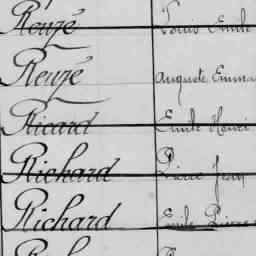 Rouzé Louis Emile
Rouzé Auguste Emma
Ricard Emile Henri
Richard Pierre Jean
Richard Emile Pierre